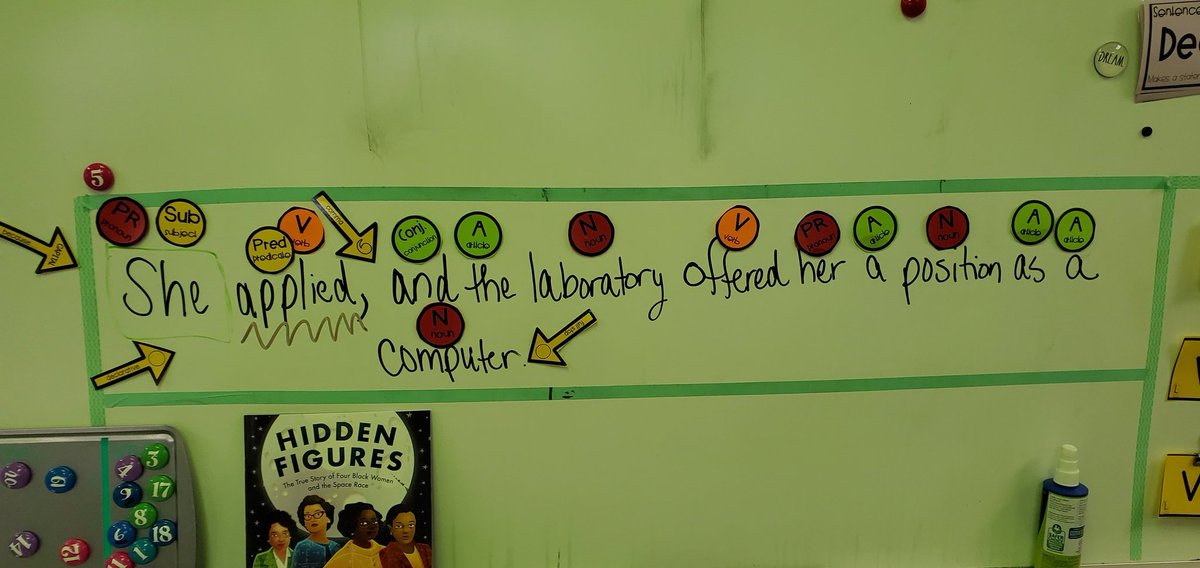 Sentence
De
Makes a state
DREAM
5
PR pronoun
Sub subject
Pred predicate
V verb
Conj. conjunction
A article
N noun
V verb
PR pronoun
A article
N noun
A article
A article
She applied, and the laboratory offered her a position as a
N noun
computer.
declarative
HIDDEN
FIGURES
The True Story of Four Black Women
and the Space Race
3
4
9
17
8
6
18
1
11
12
14